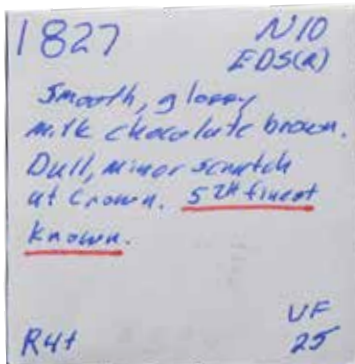 1827 N10
EDS(A)
Smooth, glossy
milk chocolate brown.
Dull, minor scratch
at Crown. 5th finest
known.
R4+ VF
25